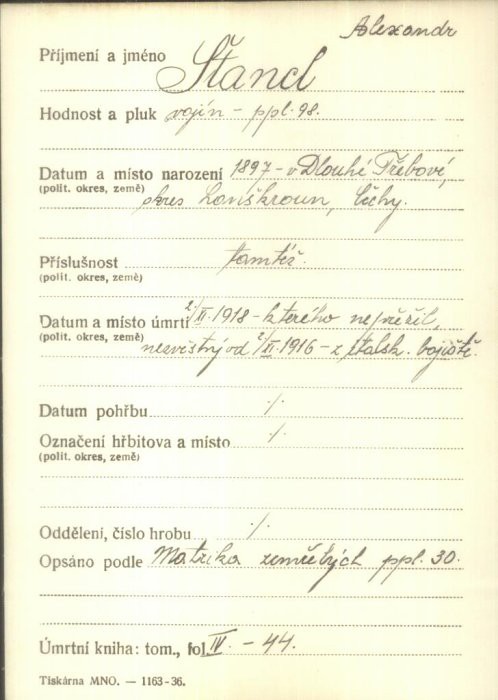 Alexandr
Příjmení a jméno Štancl
Hodnost a pluk vojín - ppl. 98.
Datum a místo narození 1897 - v Dlouhé Třebové,
(polit. okres, země) okres Lanškroun, Čechy.
Příslušnost tamtéž.
(polit. okres, země)
Datum a místo úmrtí 2/II. 1918 - kterého nepřežil,
(polit. okres, země) nezvěstný od 2/II. 1916 - z italsk. bojiště.
Datum pohřbu ./.
Označení hřbitova a místo ./.
(polit. okres, země)
Oddělení, číslo hrobu ./.
Opsáno podle Matrika zemřelých ppl. 30.
Úmrtní kniha: tom., fol. IV. - 44.
Tiskárna MNO. — 1163-36.